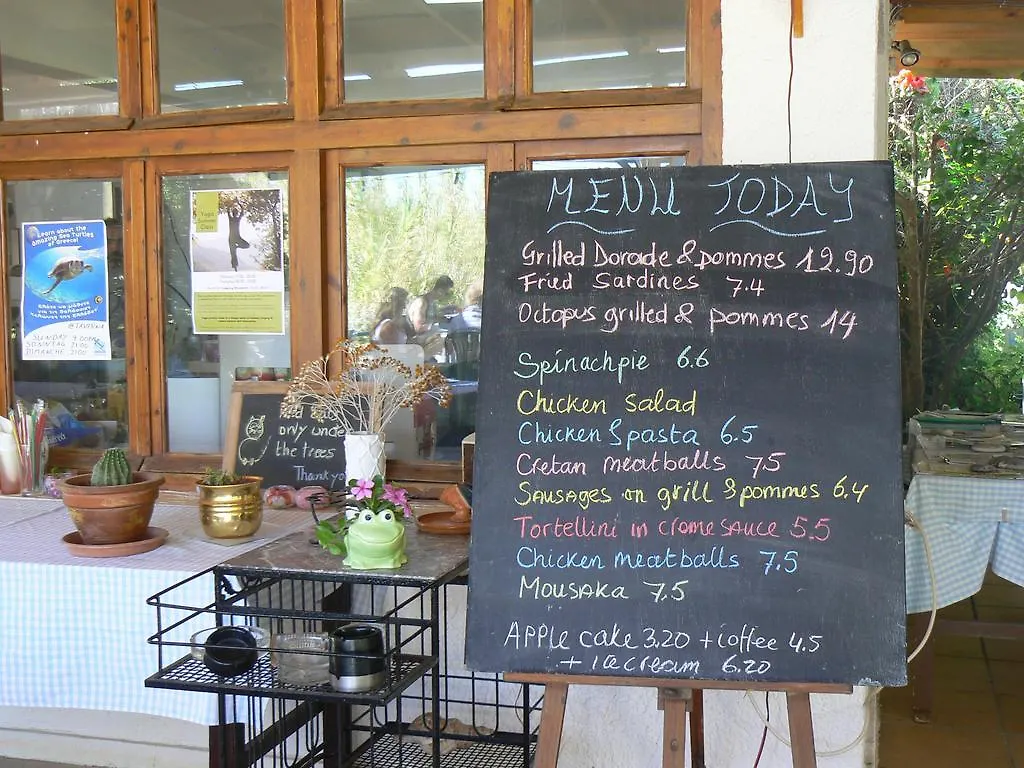 MENU TODAY
Grilled Dorade & pommes 12.90
Fried Sardines 7.4
Octopus grilled & pommes 14
Spinachpie 6.6
Chicken Salad
Chicken & pasta 6.5
Cretan meatballs 7.5
Sausages on grill & pommes 6.4
Tortellini in creme sauce 5.5
Chicken meatballs 7.5
Mousaka 7.5
Apple cake 3.20 + coffee 4.5
+ icecream 6.20
Learn about the
amazing Sea Turtles
of Greece!
SUNDAY 9.00PM
SONNTAG 21:00
DIMANCHE 21:00
Yoga
only under
the trees
Thank you